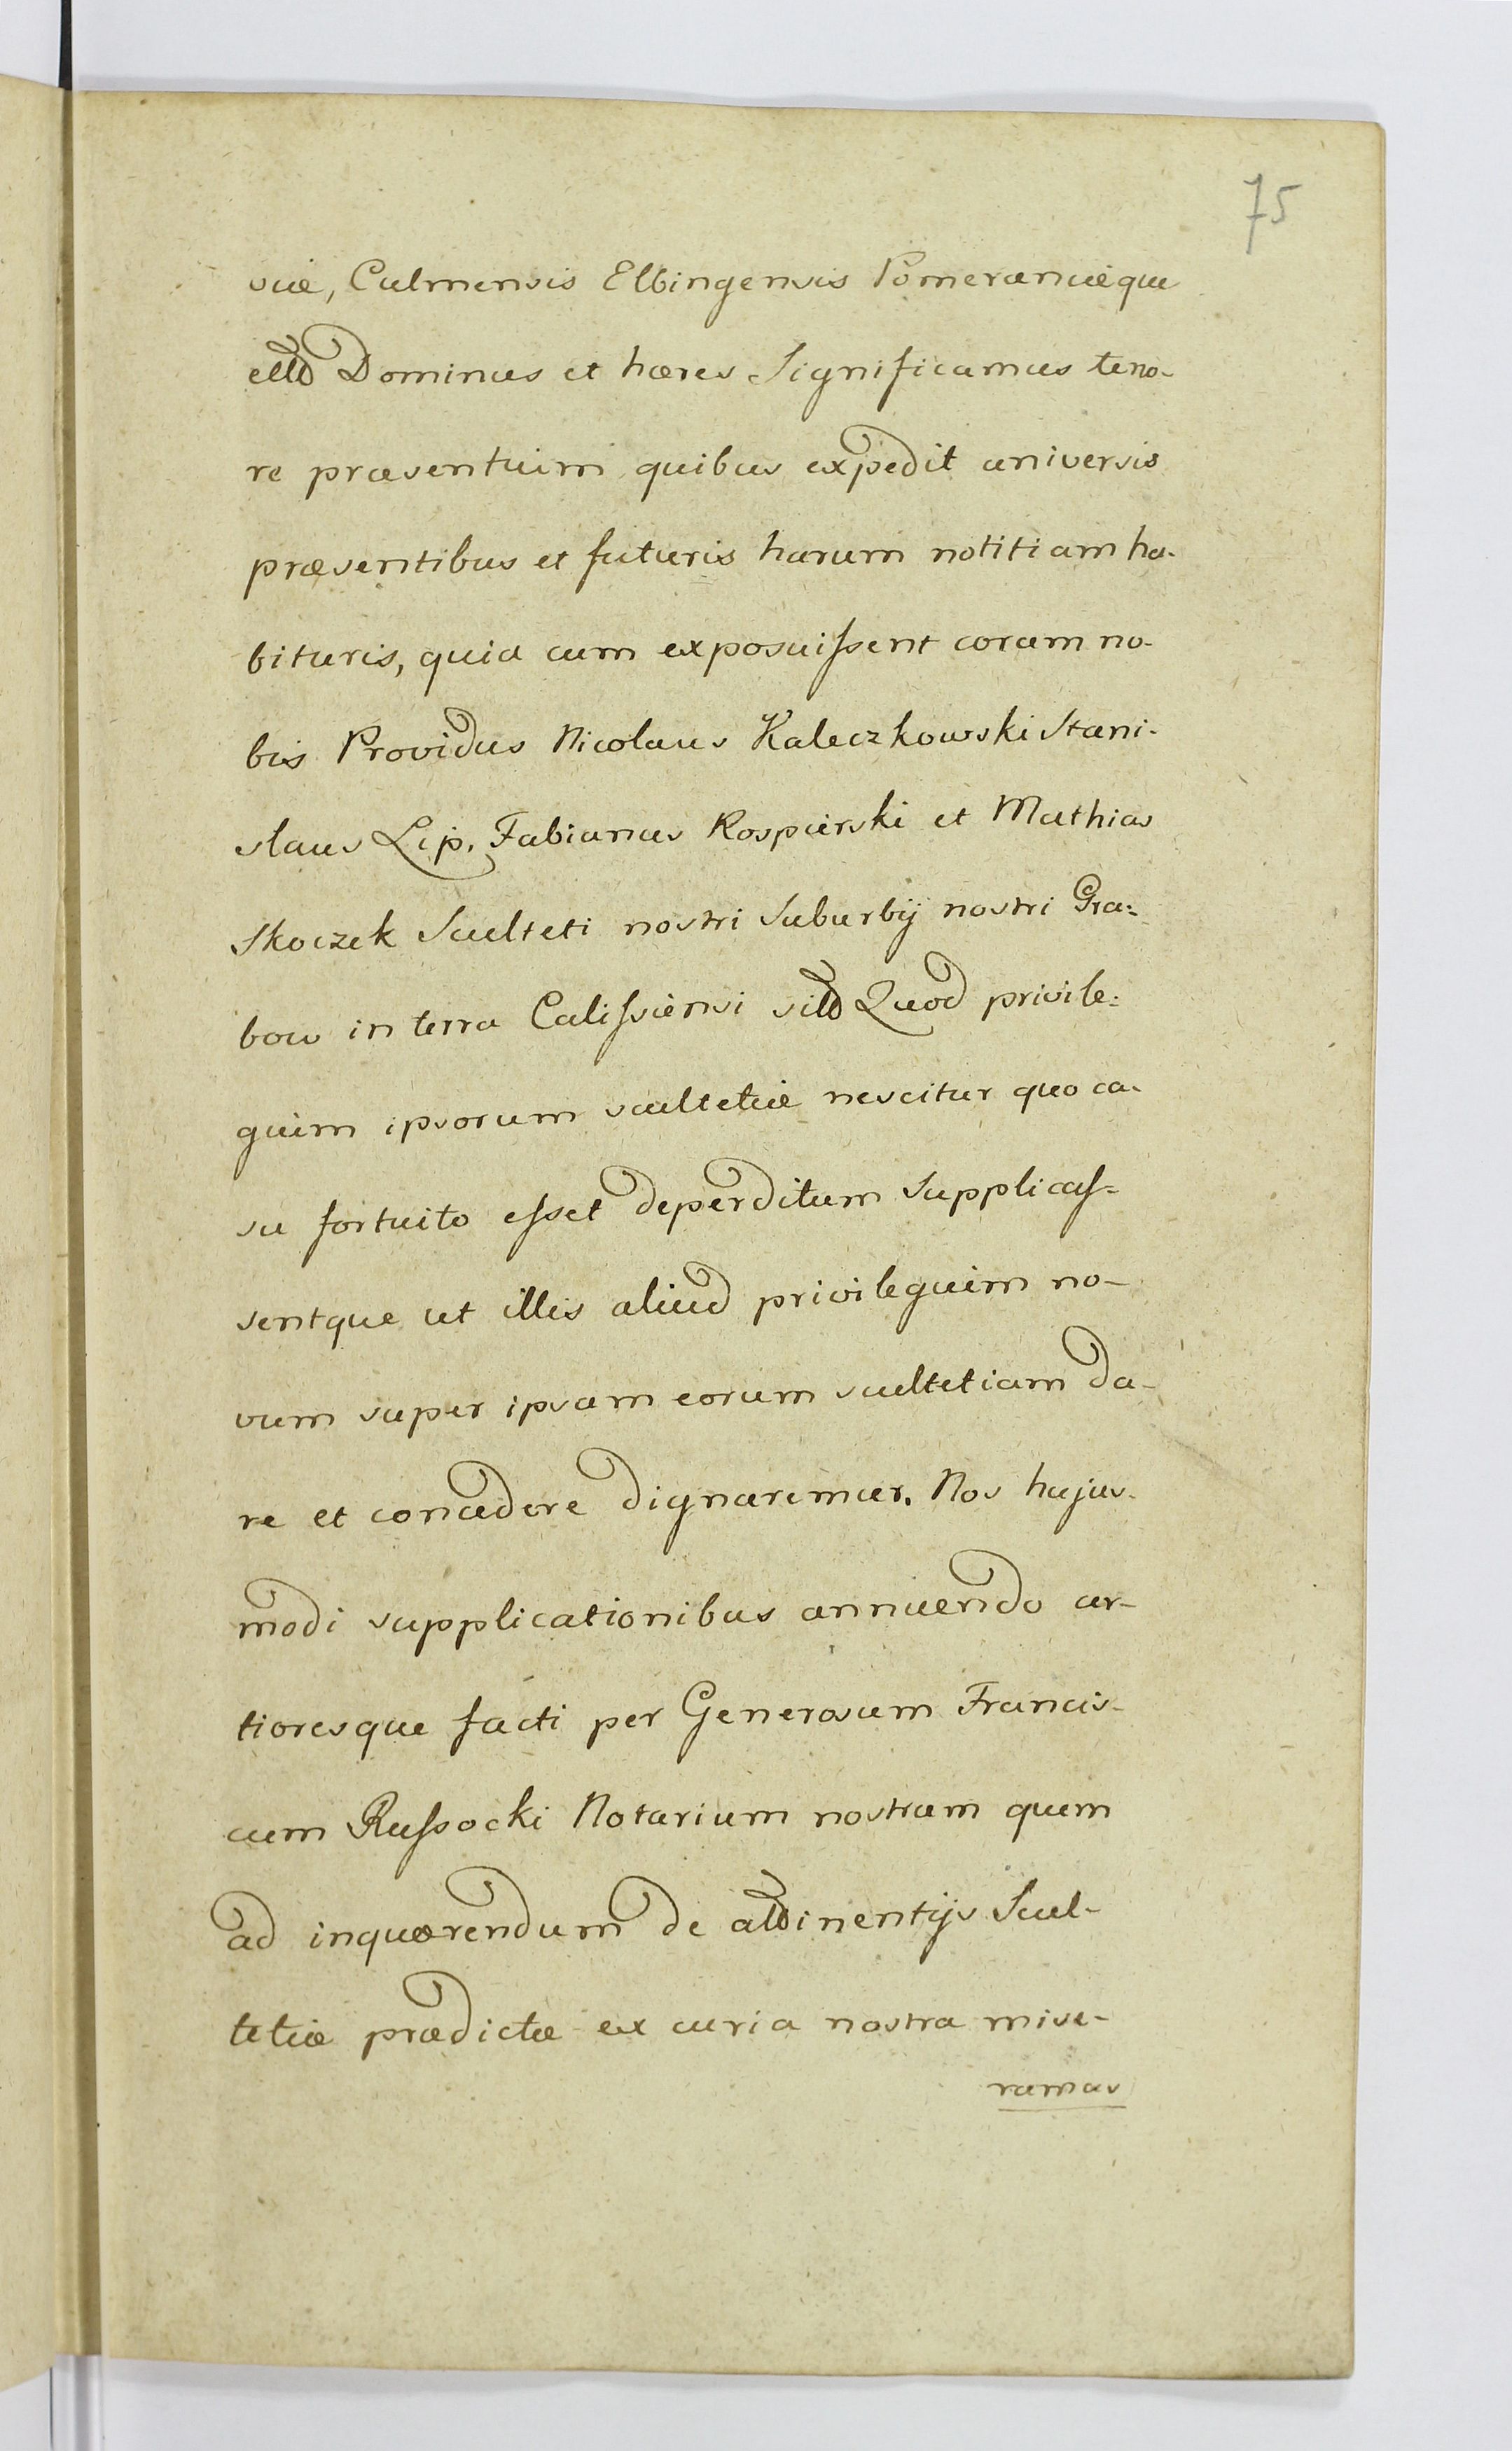 75
siæ, Culmensis Elbingensis Pomeraniæque
ettd Dominus et hæres Significamus teno-
re præsentium quibus expedit universis
præsentibus et futuris harum notitiam ha-
bituris, quia cum exposuissent coram no-
bis Providus Nicolaus Kaleczkowski Stani-
slaus Lip, Fabianus Rospierski et Mathias
Skoczek Sculteti nostri Suburbij nostri Gra=
bow in terra Calissiensi Quod privile=
gium ipsorum scultetiæ nescitur quo ca-
su fortuito esset deperditum Supplicas=
sentque ut illis aliud privilegium no-
vum super ipsam eorum scultetiam da-
re et concedere dignaremur. Nos hujus-
modi supplicationibus annuendo cer-
tioresque facti per Generosum Francis-
cum Russocki Notarium nostrum quem
ad inquærendum de attinentijs Scul-
tetiæ prædictæ ex curia nostra mise-
ramus